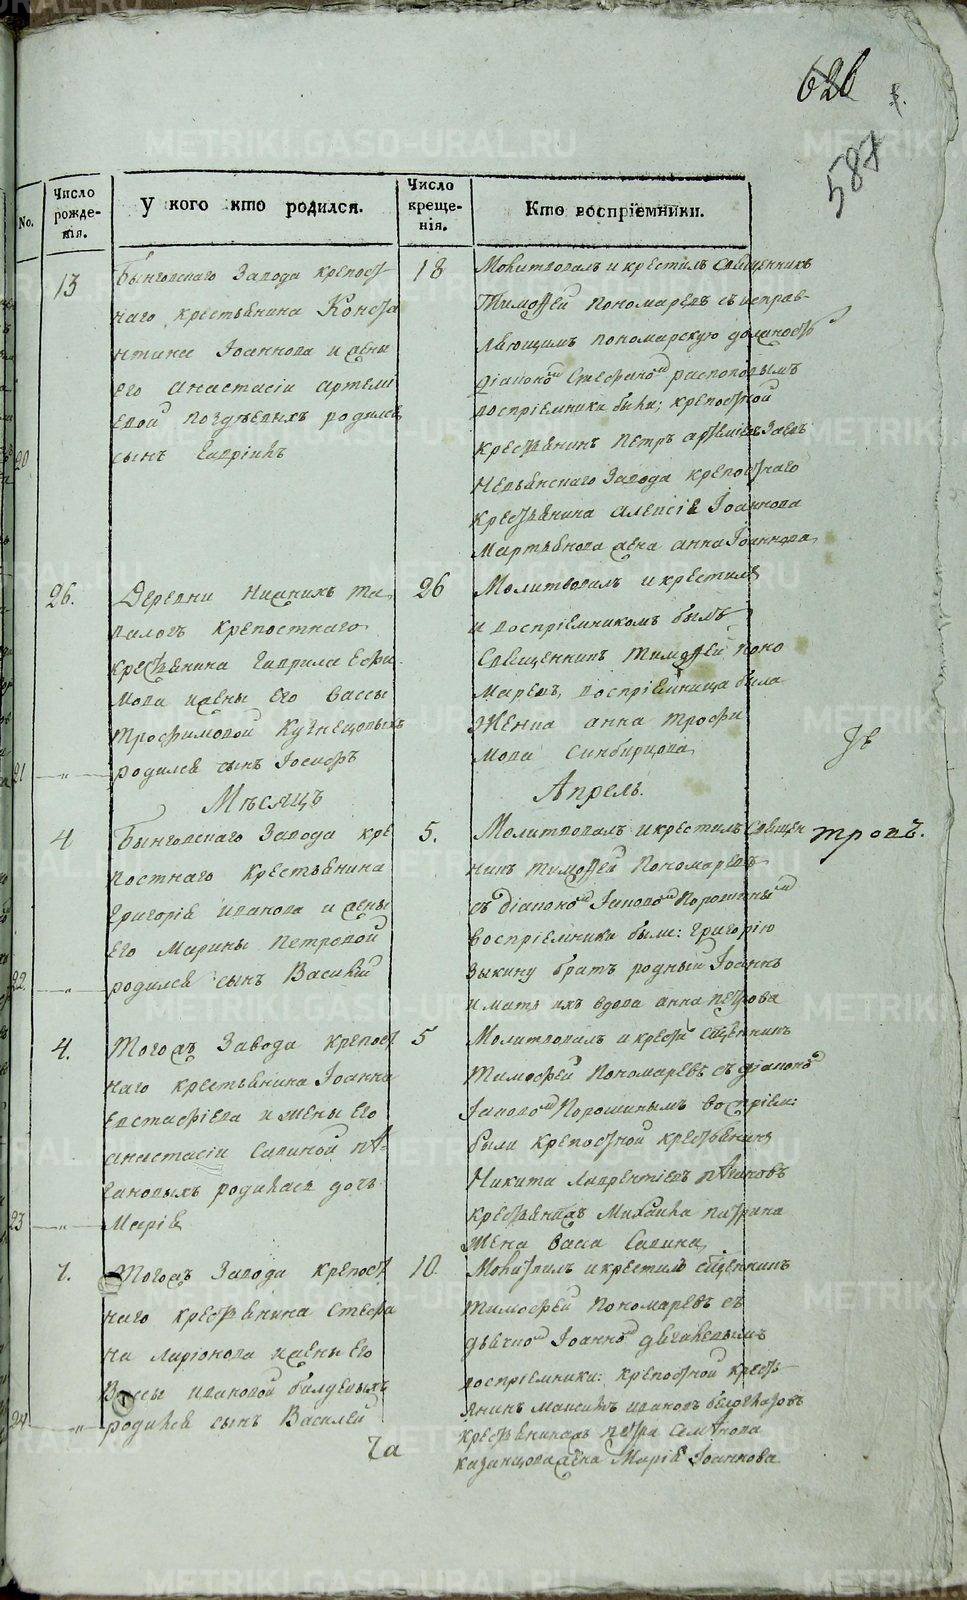 626
587
No.
Число рожде-нія.
У кого кто родился.
Число креще-нія.
Кто воспріемники.
13
Быньговскаго Завода крепост
наго крестьянина Конста
нтина Іоаннова и жены
его Анастасіи Артеми
евой Поздѣевыхъ родился
сынъ Гавріилъ
18
Молитвовалъ и крестилъ священникъ
Тимофей Пономаревъ съ исправ-
ляющимъ пономарскую должность
діакономъ Стефаномъ Распоповымъ
воспріемники были: крепостной
крестьянинъ Петръ Артемьевъ
Невьянскаго Завода крепостнаго
крестьянина Алексія Іоаннова
Мартьянова жена Анна Іоаннова
20
26.
Деревни Нижнихъ Та
вологъ крепостнаго
крестьянина Гаврила Ефи
мова и жены его Вассы
Трофимовой Кузнецовыхъ
родился сынъ Іосифъ
26
Молитвовалъ и крестилъ
и воспріемникомъ былъ
Священникъ Тимофей Поно
маревъ, воспріемница была
Женка Анна Трофи
мова Синбирцова
21
Мѣсяцъ
Апрель.
4
Быньговскаго Завода кре
постнаго крестьянина
Григорія Иванова и жены
его Марины Петровой
родился сынъ Василій
5.
Молитвовалъ и крестилъ Священ
никъ Тимофей Пономаревъ
съ діакономъ Іаковомъ Порошинымъ
воспріемники были: Григорію
Зыкину братъ родный Іоаннъ
и мать ихъ вдова Анна Петрова
22
4.
Тогожъ Завода крепост
наго крестьянина Іоанна
Евстафіева и жены его
Анастасіи Савиной
родилась дочь
Марія
5
Молитвовалъ и крести Сщенникъ
Тимофей Пономаревъ съ діакономъ
Іаковомъ Порошинымъ воспріем:
были крепостной крестьянинъ
Никита Лаврентіевъ
крестьянина Михаила
жена Васа Савина
23
7.
Тогожъ Завода крепост
наго крестьянина Стефа
на Ларіонова и жены его
Вассы Ивановой
родился сынъ Василей
10
крестилъ Сщенникъ
Тимофей Пономаревъ съ
дьячкомъ Іоанномъ
воспріемники: крепостной кресть
янинъ Максимъ Ивановъ
крестьянина Петра
Казанцова жена Марія Іоаннова
24
тровъ.